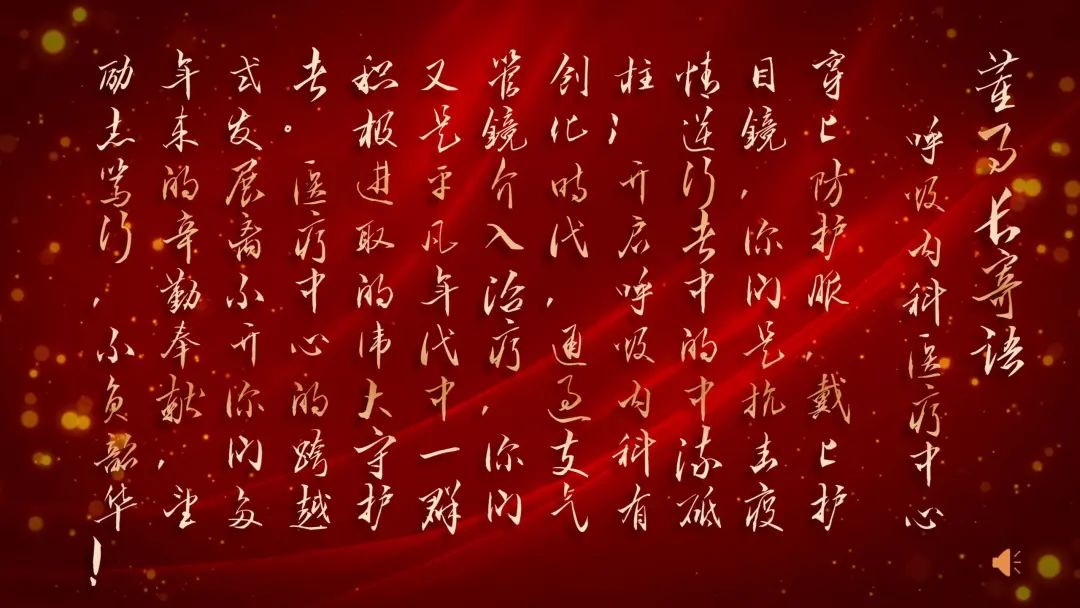 董事长寄语
呼吸内科医疗中心
穿上防护服，戴上护
目镜，你们是抗击疫
情逆行者中的中流砥
柱；开启呼吸内科有
创化时代，通过支气
管镜介入治疗，你们
又是平凡年代中一群
积极进取的伟大守护
者。医疗中心的跨越
式发展离不开你们多
年来的辛勤奉献，望
励志笃行，不负韶华！